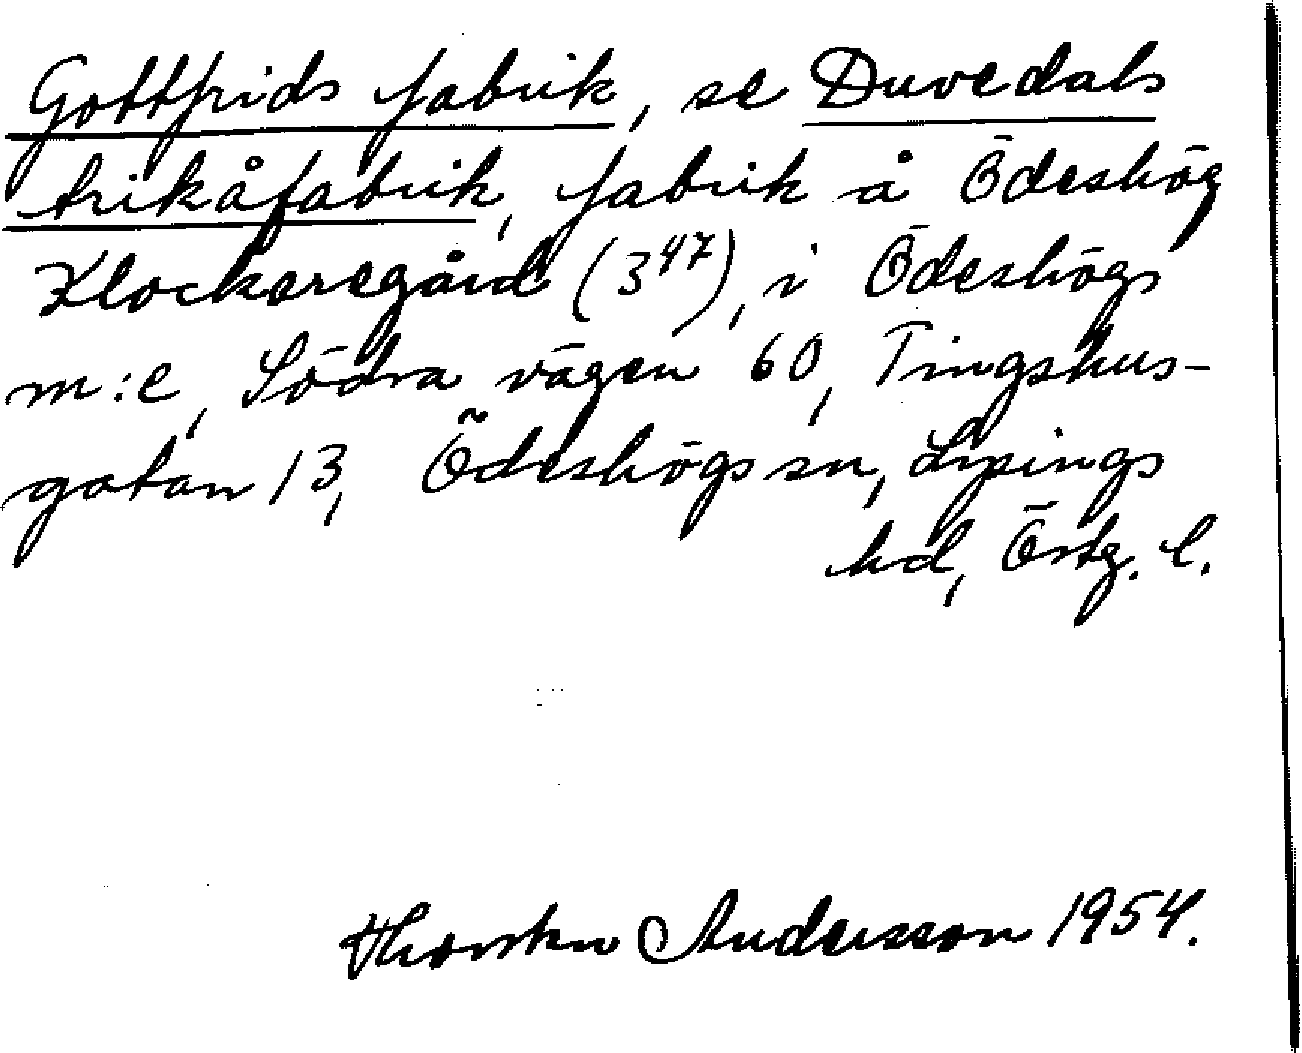 Gottfrids fabrik, se Duvedals
trikåfabrik, fabrik å Ödeshög
Klockaregård (3⁴⁷), i Ödeshögs
m:e, Södra vägen 60, Tingshus-
gatan 13, Ödeshögs sn, Lysings
hd, Östg. l.
Thorsten Andersson 1954.